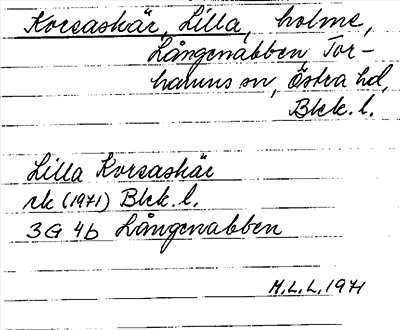 Korsaskär, Lilla, holme,
Långenabben, Tor-
hamns sn, Östra hd,
Blek. l.
Lilla Korsaskär
rk (1971) Blek. l.
3G 4b Långenabben
M.L.L. 1971